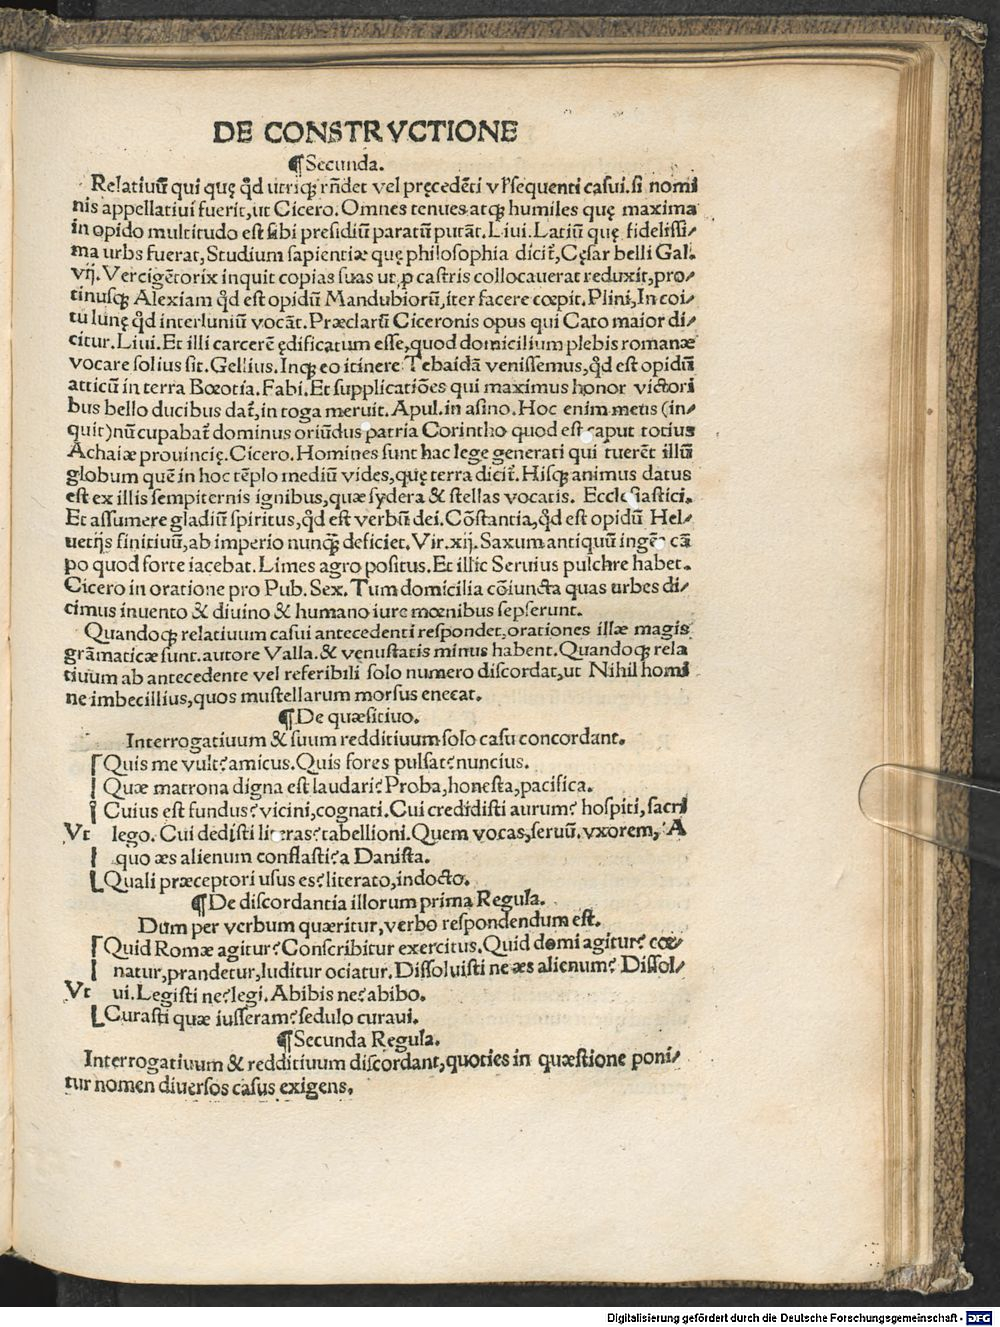 DE CONSTRVCTIONE
¶Secunda.
Relatiuũ qui quę qd̃ utriqꝫ rñdet vel pręcedẽti vl' sequenti casui. si nomi
nis appellatiui fuerit, ut Cicero. Omnes tenues atqꝫ humiles quę maxima
in opido multitudo est sibi presidiũ paratũ putãt. Liui. Latiũ quę fidelissi⸗
ma urbs fuerat, Studium sapientiæ quę philosophia dicit̃, Cęsar belli Gal.
vij. Vercigẽtorix inquit copias suas ut ꝓ castris collocauerat reduxit, pro⸗
tinusqꝫ Alexiam qd̃ est opidũ Mandubiorũ, iter facere cœpit. Plini, In coi⸗
tu lunę qd̃ interluniũ vocãt. Præclarũ Ciceronis opus qui Cato maior di⸗
citur. Liui. Et illi carcerẽ ędificatum esse, quod domicilium plebis romanæ
vocare solius sit. Gellius. Inqꝫ eo itinere Tebaidã venissemus, qd̃ est opidũ
atticũ in terra Bœotia. Fabi. Et supplicatiões qui maximus honor victori
bus bello ducibus dat̃, in toga meruit. Apul. in asino. Hoc enim metus (in⸗
quit) nũcupabat̃ dominus oriũdus patria Corintho quod est caput totius
Achaiæ prouincię. Cicero. Homines sunt hac lege generati qui tuerẽt illũ
globum quẽ in hoc tẽplo mediũ vides, quę terra dicit̃. Hisqꝫ animus datus
est ex illis sempiternis ignibus, quæ sydera & stellas vocatis. Ecclesiastici.
Et assumere gladiũ spiritus, qd̃ est verbũ dei. Cõstantia, qd̃ est opidũ Hel⸗
uetijs finitiuũ, ab imperio nunqꝫ̃ deficiet. Vir. xij. Saxum antiquũ ingẽs cã
po quod forte iacebat. Limes agro positus. Et illic Seruius pulchre habet.
Cicero in oratione pro Pub. Sex. Tum domicilia cõiuncta quas urbes di⸗
cimus inuento & diuino & humano iure mœnibus sepserunt.
Quandoqꝫ relatiuum casui antecedenti respondet, orationes illæ magis
grãmaticæ sunt. autore Valla. & venustatis minus habent. Quandoqꝫ rela
tiuum ab antecedente vel referibili solo numero discordat, ut Nihil homi
ne imbecillius, quos mustellarum morsus enecat.
¶De quæsitiuo.
Interrogatiuum & suum redditiuum solo casu concordant.
Quis me vult? amicus. Quis fores pulsat? nuncius.
Quæ matrona digna est laudari? Proba, honesta, pacifica.
Cuius est fundus? vicini, cognati. Cui credidisti aurum? hospiti, sacri
Vt lego. Cui dedisti literas? tabellioni. Quem vocas, seruũ, vxorem, A
quo æs alienum conflasti? a Danista.
Quali præceptori usus es? literato, indocto.
¶De discordantia illorum prima Regula.
Dum per verbum quæritur, verbo respondendum est.
Quid Romæ agitur? Conscribitur exercitus. Quid domi agitur? cœ⸗
natur, prandetur, luditur ociatur. Dissoluisti ne æs alienum? Dissol⸗
Vt vi. Legisti ne? legi. Abibis ne? abibo.
Curasti quæ iusseram? sedulo curaui.
¶Secunda Regula.
Interrogatiuum & redditiuum discordant, quoties in quæstione poni⸗
tur nomen diuersos casus exigens.
Digitalisierung gefördert durch die Deutsche Forschungsgemeinschaft - DFG